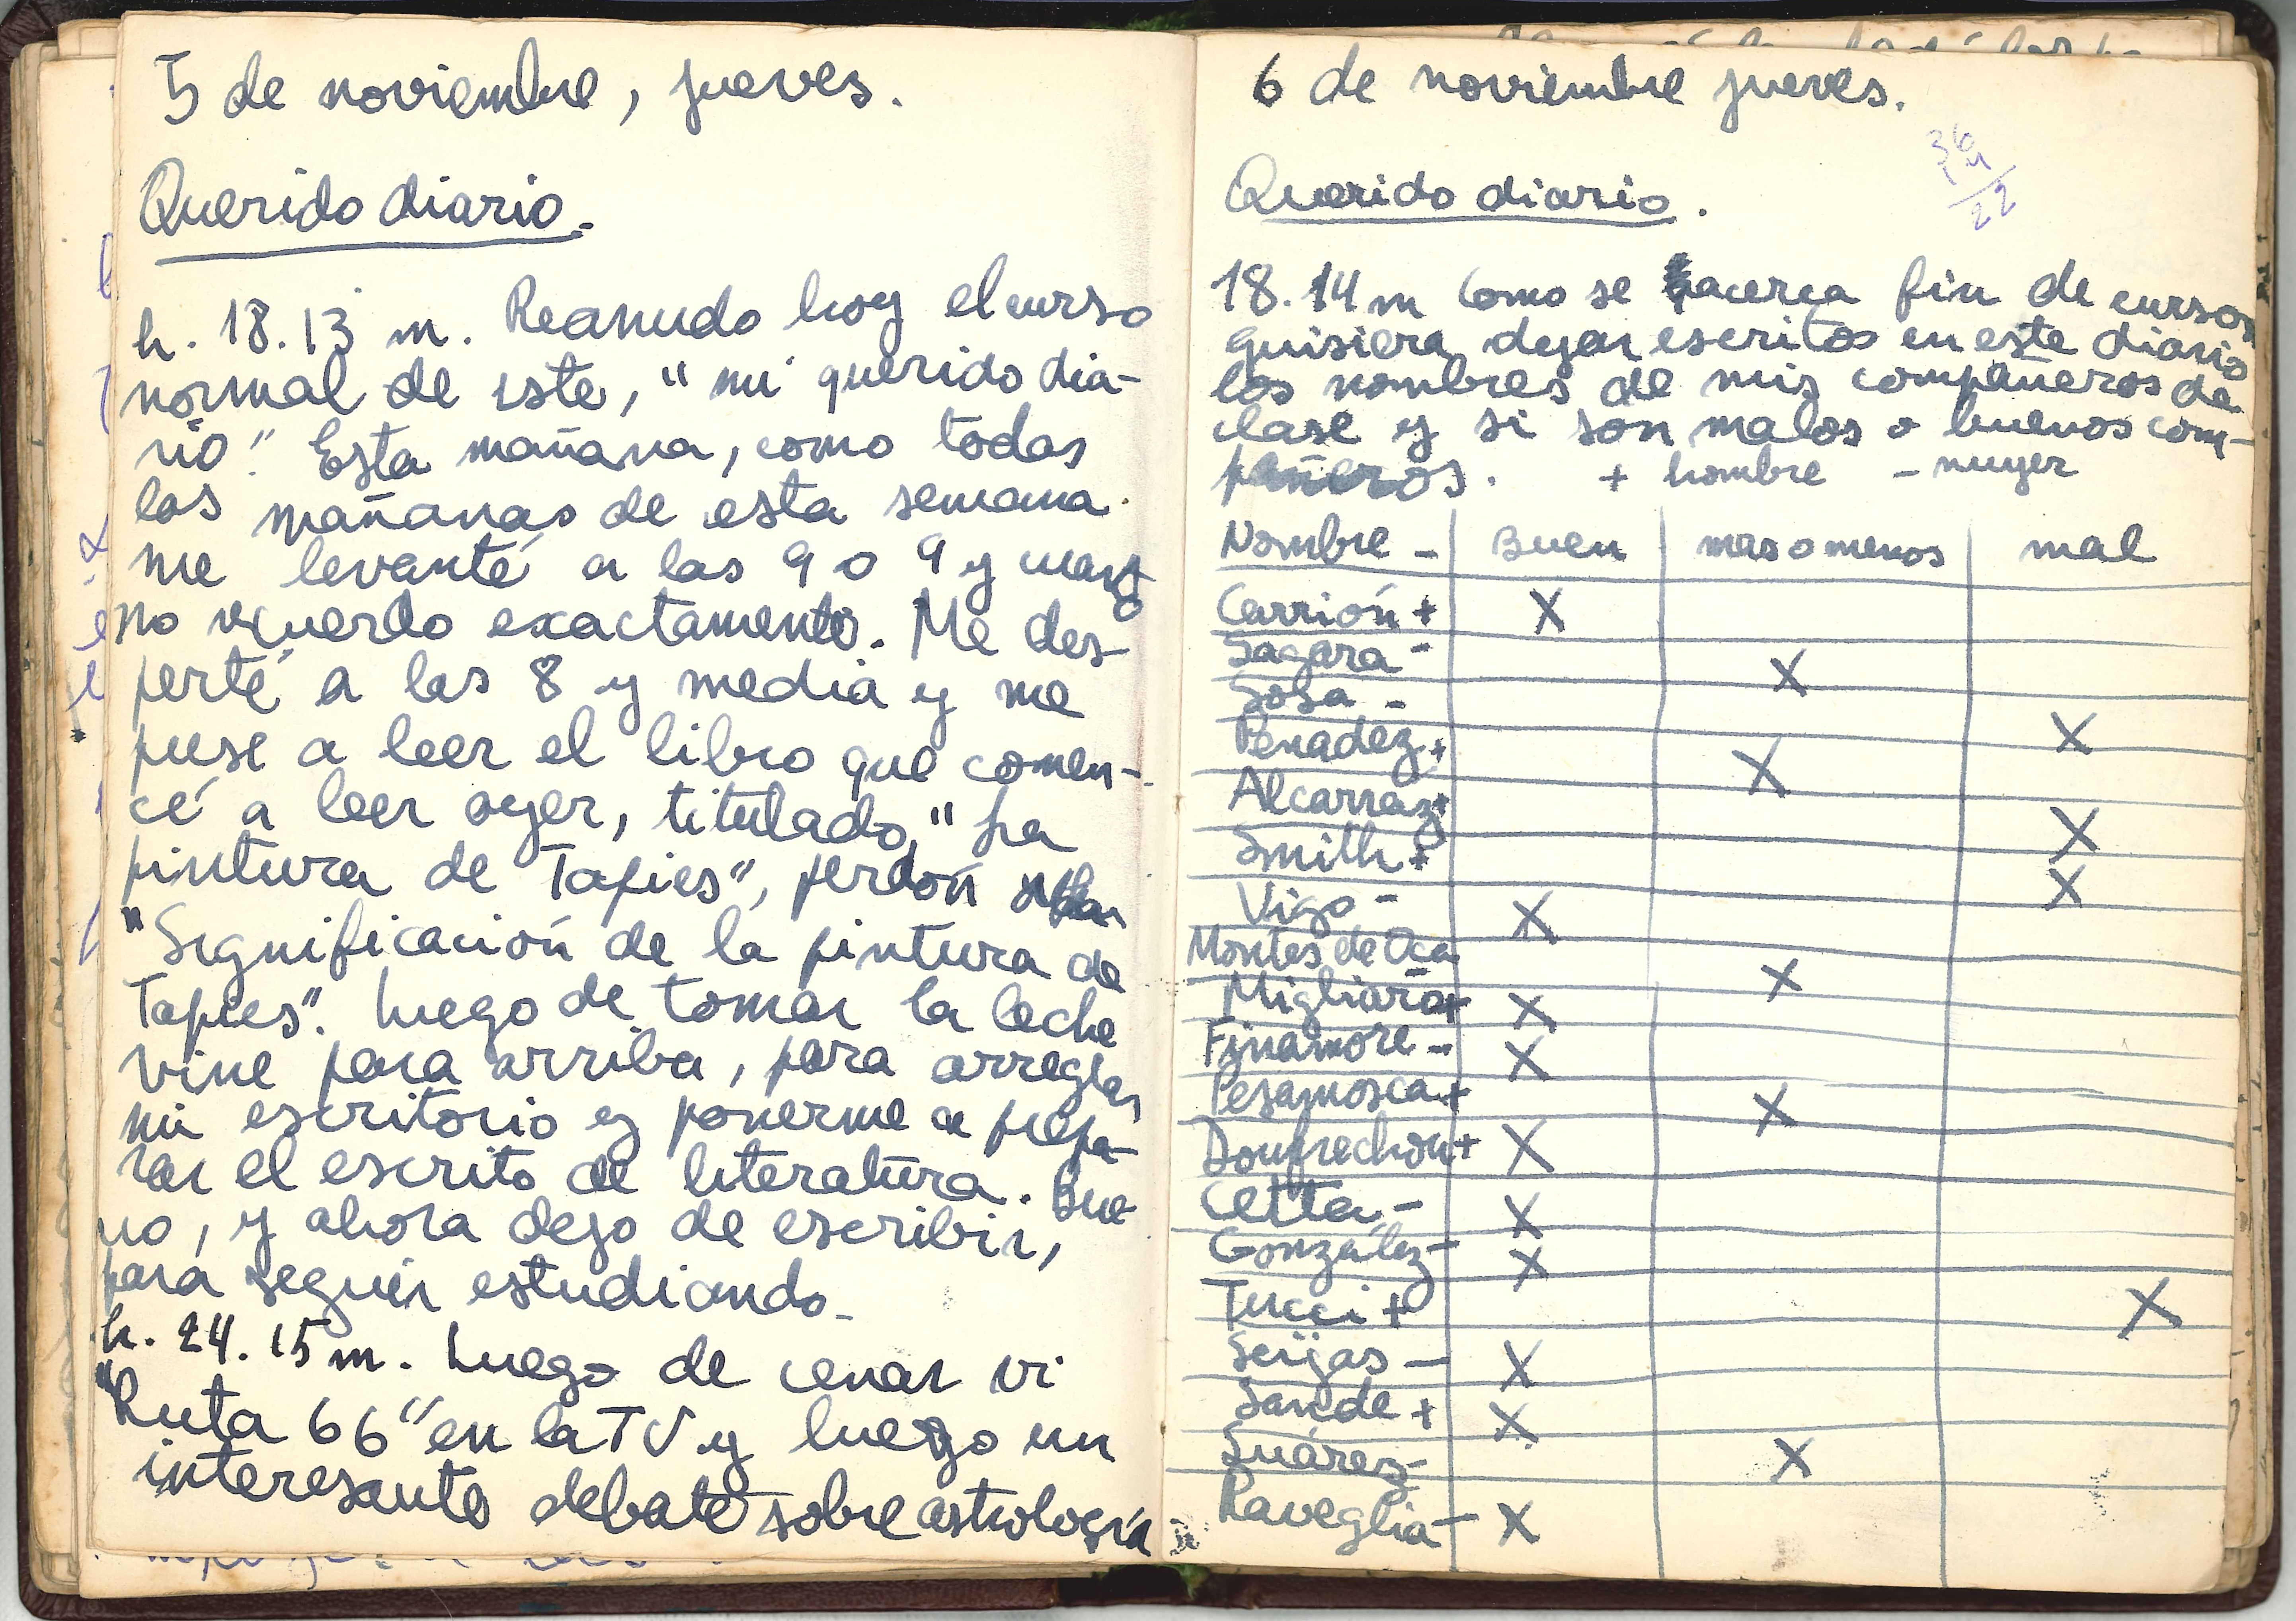 5 de noviembre, jueves.
Querido diario.
h. 18.13 m. Reanudo hoy el curso
normal de este, "mi querido dia-
rio". Esta mañana, como todas
las mañanas de esta semana
me levanté a las 9 o 9 y cuarto
no recuerdo exactamente. Me des-
perté a las 8 y media y me
puse a leer el libro que comen-
cé a leer ayer, titulado, "La
pintura de Tapies", perdón
"Significación de la pintura de
Tapies". Luego de tomar la leche
vine para arriba, para arreglar
mi escritorio y ponerme a prepa-
rar el escrito de literatura. Bue-
no, y ahora dejo de escribir,
para seguir estudiando.
h. 24.15 m. Luego de cenar vi
"Ruta 66" en la TV y luego un
interesante debate sobre astrología
6 de noviembre jueves.
36
22
Querido diario.
18.14 m Como se acerca fin de cursos
quisiera dejar escritos en este diario
los nombres de mis compañeros de
clase y si son malos o buenos com-
pañeros. + hombre - mujer
Nombre - Buen mas o menos mal
Carrión + X
Sagara - X
Sosa - X
Penadez + X
Alcarraz + X
Smith + X
Vigo - X
Montes de Oca - X
Migliaro + X
Finamore - X
Pesamosca + X
Doufrechou + X
Cetta - X
González - X
Tucci + X
Seijas - X
Sande + X
Suárez - X
Raveglia - X